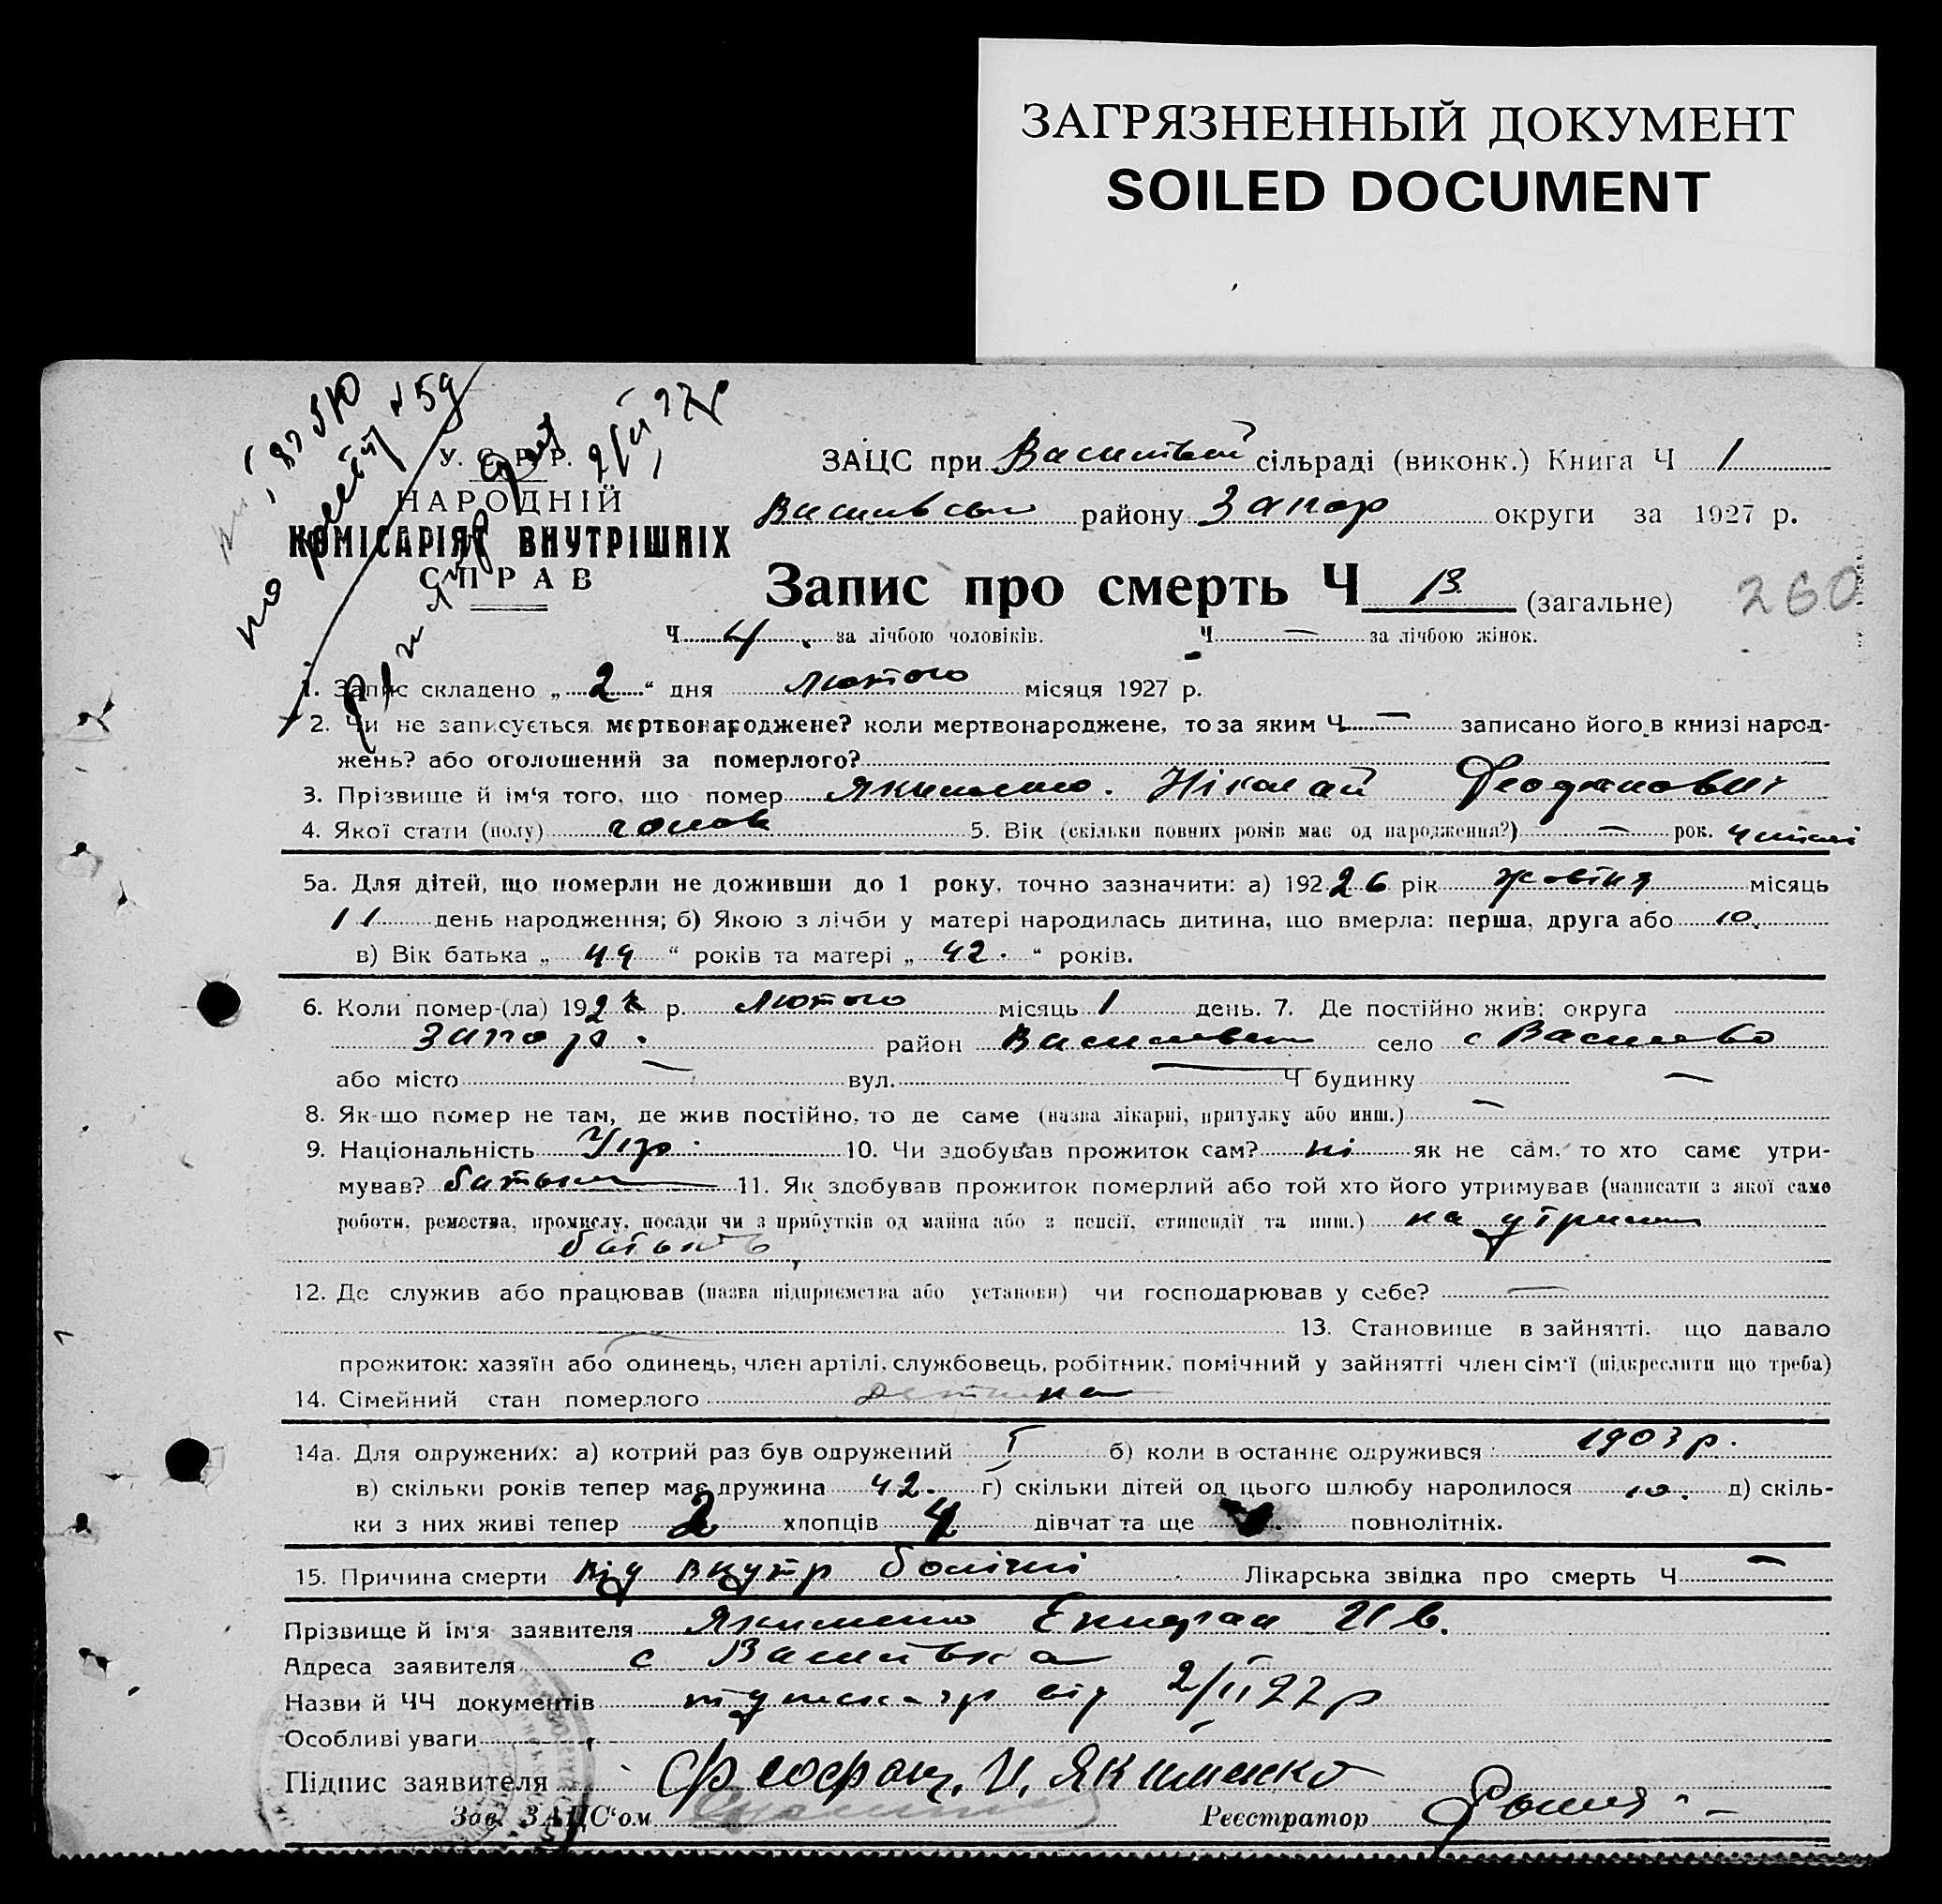 ЗАГРЯЗНЕННЫЙ ДОКУМЕНТ
SOILED DOCUMENT
У. С. Р. Р.
НАРОДНІЙ
КОМІСАРІЯТ ВНУТРІШНІХ
СПРАВ
ЗАЦС при сільраді (виконк.) Книга Ч 1
району Запор округи за 1927 р.
Запис про смерть Ч 13 (загальне)
260
Ч 4 за лічбою чоловіків. Ч — за лічбою жінок.
1. Запис складено „ 2 “ дня лютого місяця 1927 р.
2. Чи не записується мертвонароджене? коли мертвонароджене, то за яким Ч — записано його в книзі народ-
жень? або оголошений за померлого?
3. Прізвище й ім'я того, що помер Якименко Ніколай
4. Якої стати (полу) чолов 5. Вік (скільки повних років має од народження?) — рок. 4
5а. Для дітей, що померли не доживши до 1 року, точно зазначити: а) 1926 рік жовтня місяць
11 день народження; б) Якою з лічби у матері народилась дитина, що вмерла: перша, друга або 10.
в) Вік батька „ 44 “ років та матері „ 42. “ років.
6. Коли помер-(ла) 1927 р. лютого місяць 1 день. 7. Де постійно жив: округа
Запор. район село с
або місто — вул. — Ч будинку —
8. Як-що помер не там, де жив постійно, то де саме (назва лікарні, притулку або инш.) —
9. Національність Укр. 10. Чи здобував прожиток сам? ні як не сам, то хто саме утри-
мував? батьки 11. Як здобував прожиток померлий або той хто його утримував (написати з якої саме
роботи, ремества, промислу, посади чи з прибутків од майна або з пенсії, стипендії та инш.) на утриман
батьків
12. Де служив або працював (назва підприємства або установи) чи господарював у себе? —
13. Становище в зайнятті, що давало
прожиток: хазяїн або одинець, член артілі, службовець, робітник, помічний у зайнятті член сім'ї (підкреслити що треба)
14. Сімейний стан померлого дитина
14а. Для одружених: а) котрий раз був одружений I б) коли в останнє одружився 1903 р.
в) скільки років тепер має дружина 42. г) скільки дітей од цього шлюбу народилося 10. д) скіль-
ки з них живі тепер 2 хлопців 4 дівчат та ще повнолітніх.
15. Причина смерти від внутр болізні Лікарська звідка про смерть Ч —
Прізвище й ім'я заявителя Якименко Ив.
Адреса заявителя с Василівка
Назви й ЧЧ документів від 2/II 27 р
Особливі уваги
Підпис заявителя Феофан. И. Якименко
Зав. ЗАЦС'ом Реєстратор